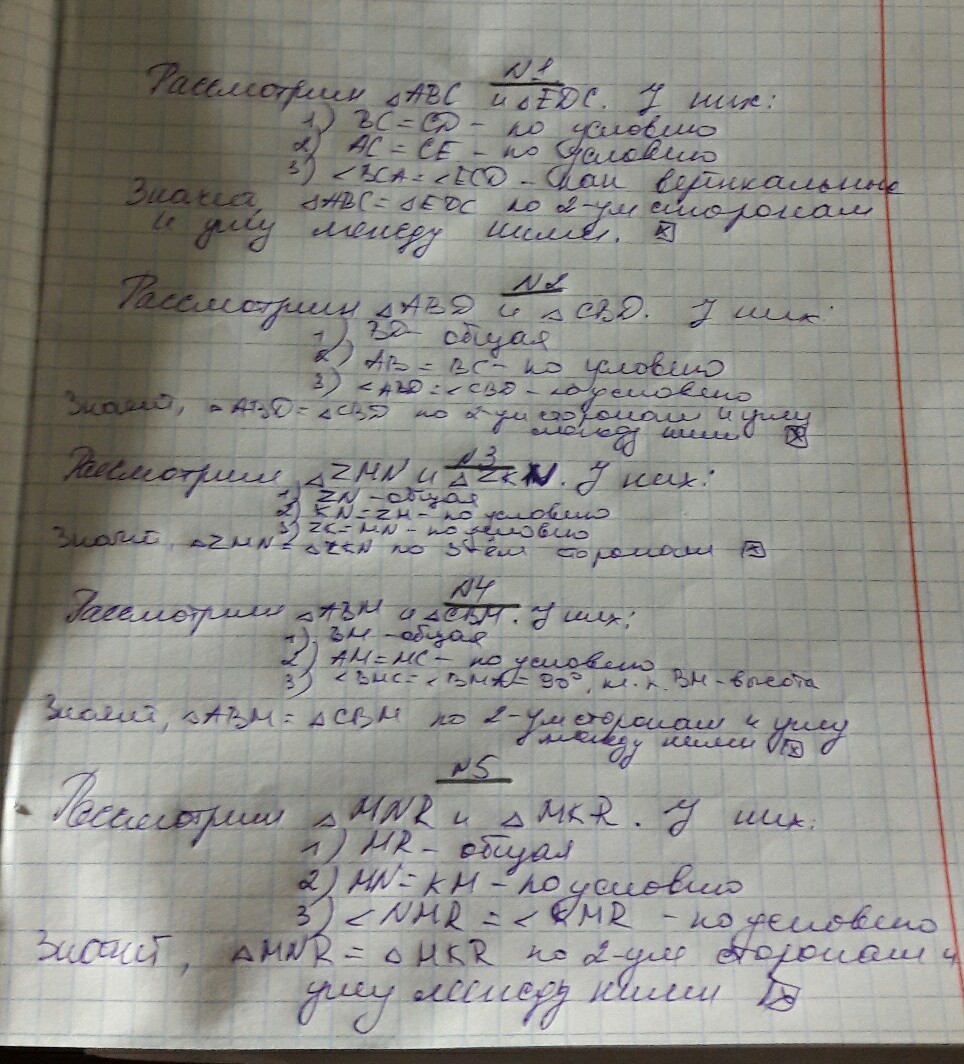 N1
Рассмотрим △ABC и △EDC. У них:
1) BC = CD - по условию
2) AC = CE - по условию
3) <BCA = <ECD - как вертикальные
Значит, △ABC = △EDC по 2-ум сторонам
и углу между ними. ⊠
N2
Рассмотрим △ABD и △CBD. У них:
1) BD - общая
2) AB = BC - по условию
3) <ABD = <CBD - по условию
Значит, △ABD = △CBD по 2-ум сторонам и углу
между ними ⊠
N3
Рассмотрим △ZMN и △ZKN. У них:
1) ZN - общая
2) KN = ZM - по условию
3) ZK = MN - по условию
Значит, △ZMN = △ZKN по 3-ём сторонам ⊠
N4
Рассмотрим △ABM и △CBM. У них:
1) BM - общая
2) AM = MC - по условию
3) <BMC = <BMA = 90°, т.к. BM - высота
Значит, △ABM = △CBM по 2-ум сторонам и углу
между ними ⊠
N5
Рассмотрим △MNR и △MKR. У них:
1) MR - общая
2) MN = KM - по условию
3) <NMR = <KMR - по условию
Значит, △MNR = △MKR по 2-ум сторонам и
углу между ними ⊠